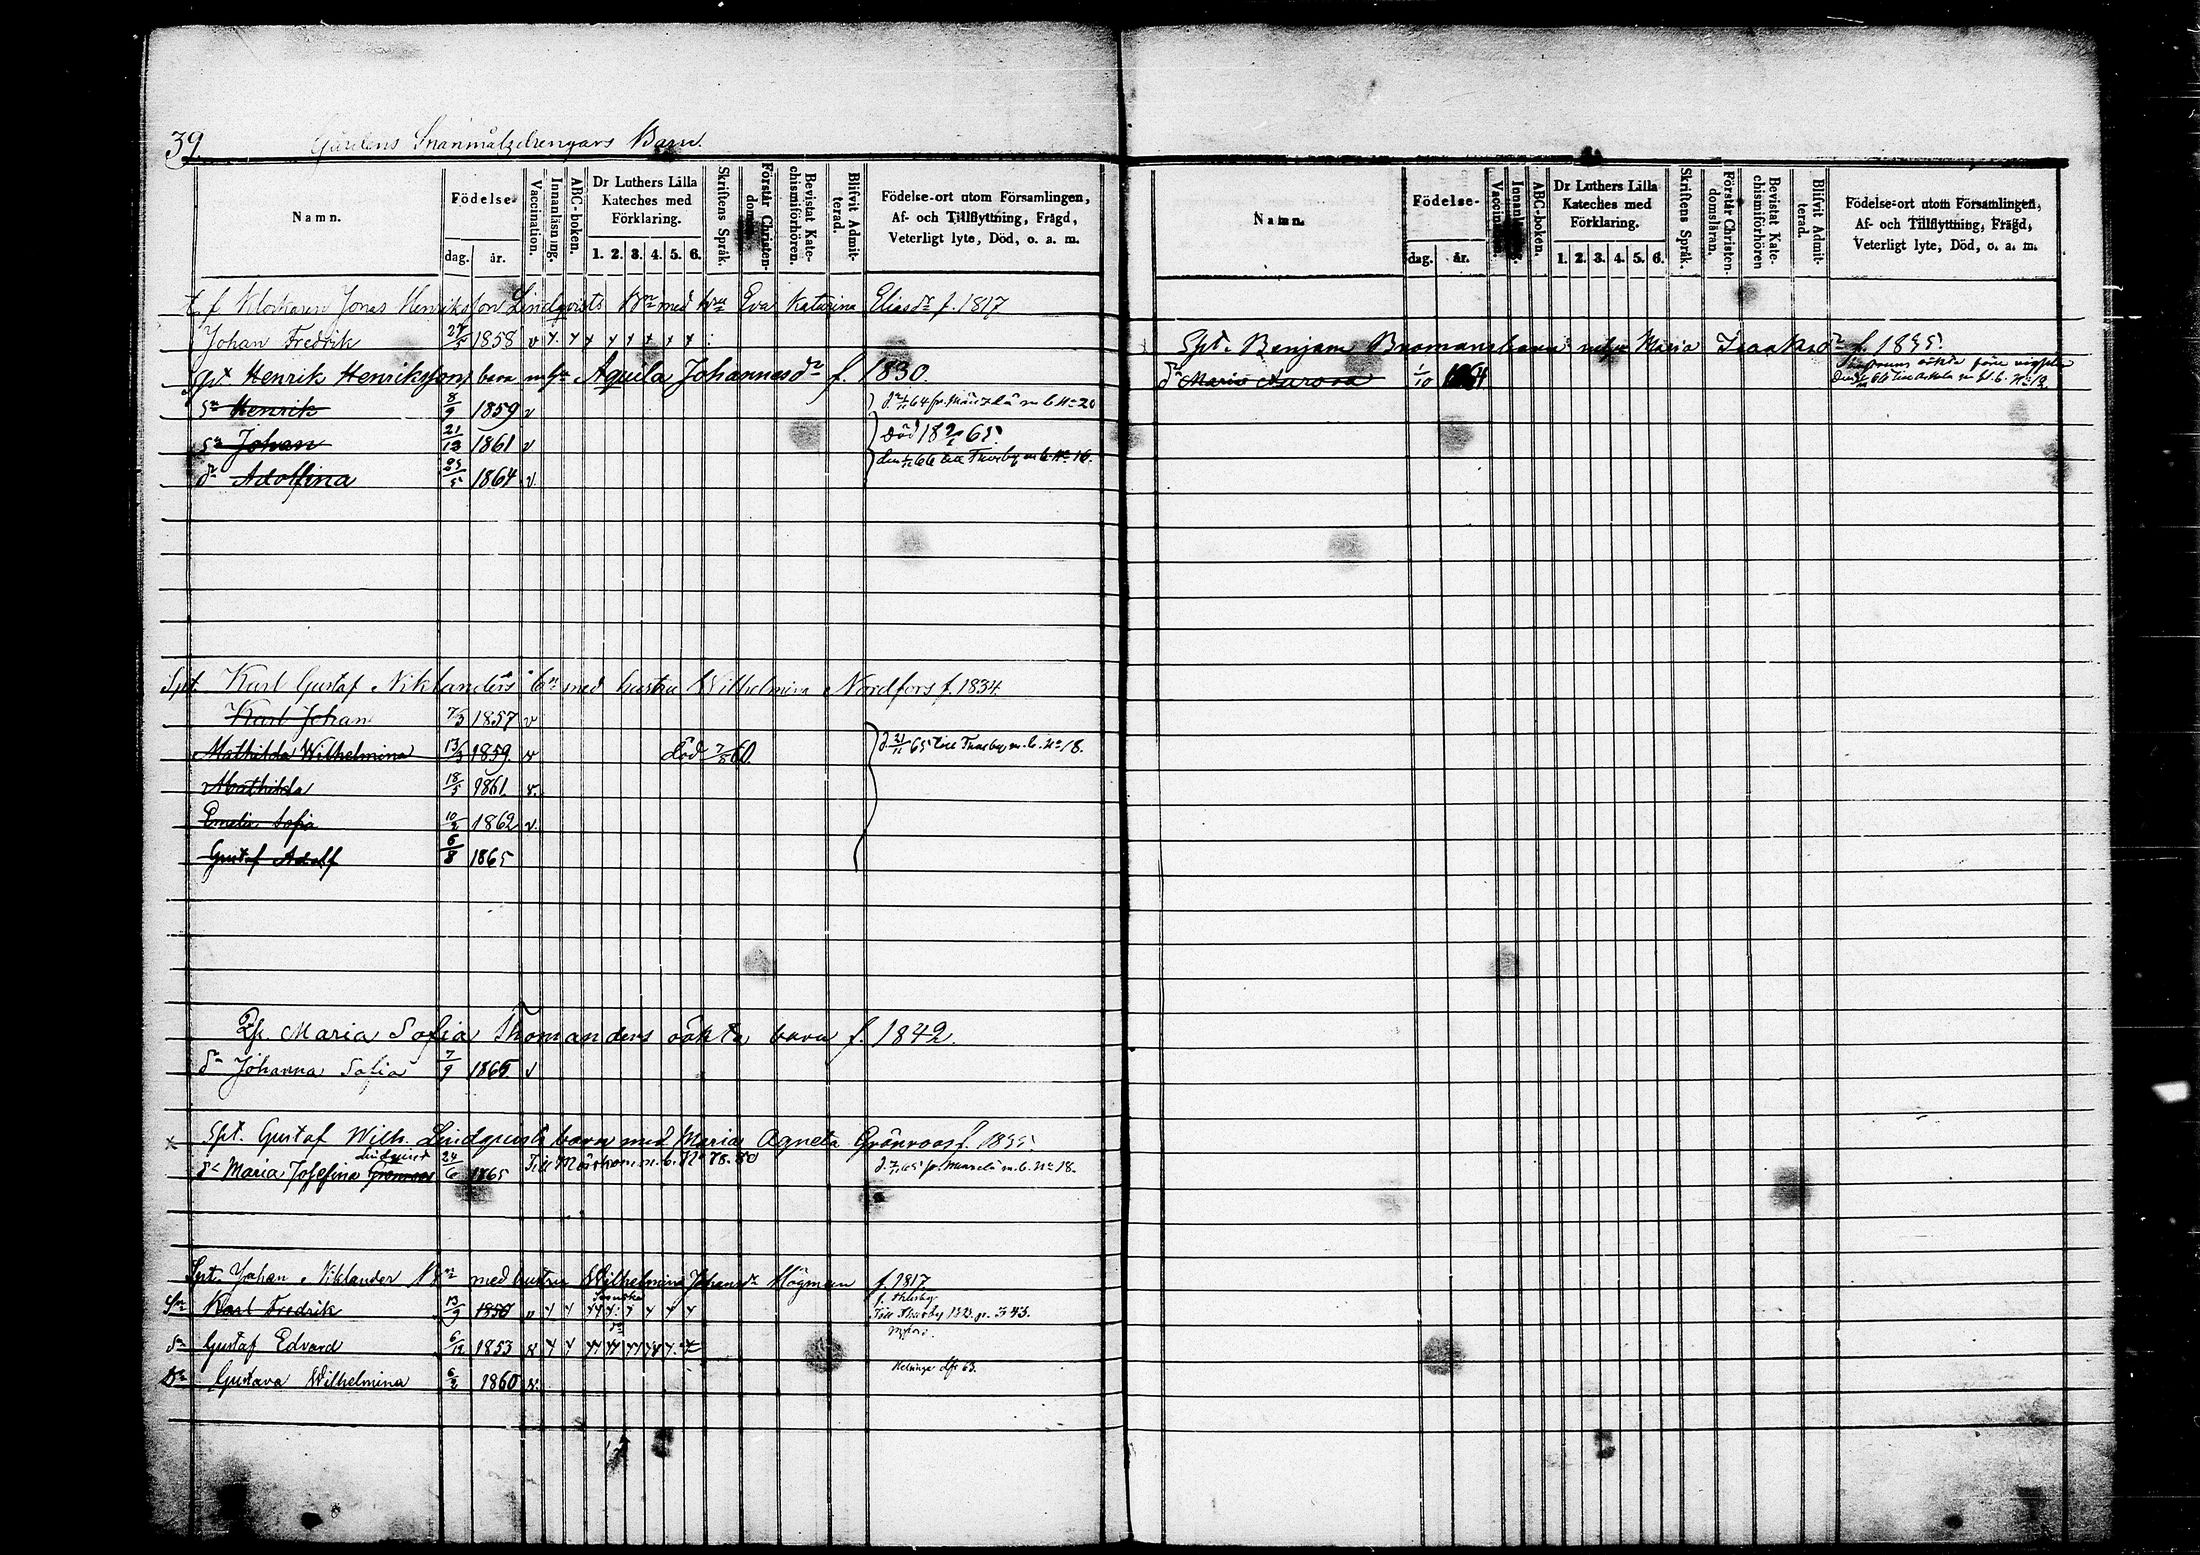 39.
Gårdens Spanmålsdrengars Barn.
Namn. Födelse- dag. år. Vaccination. Innanläsning. ABC-boken. Dr Luthers Lilla Kateches med Förklaring. 1. 2. 3. 4. 5. 6. Skriftens Språk. Förstår Christendomen. Bevistat Katechismiförhören. Blifvit Admitterad. Födelse-ort utom Församlingen, Af- och Tillflyttning, Frägd, Veterligt lyte, Död, o. a. m.
t.f. Klockaren Jonas Henriksson Lindqvists Bn med hru Eva Katarina Eliasdr f. 1817
Johan Fredrik 27/5 1858 v
Henrik Henriksson barn m hu Aqvila Johannesdr f. 1830.
Sn Henrik 8/9 1859 v m b No 20
Sn Johan 21/12 1861 v död 65.
dr Adolfina 25/5 1864 v 66 till Thusby m b No 16.
Spt. Karl Gustaf Niklanders bn med hustru Wilhelmina Nordfors f. 1834
Karl Johan 7/3 1857 v
Mathilda Wilhelmina 13/3 1859. v död 7/5 60. d. 21/11 65 till Thusby m. b. No 18.
Mathilda 18/5 1861 v.
Emelie Sofia 10/2 1862 v.
Gustaf Adolf 6/8 1865
Maria Sofia Thomanders oäkta barn f. 1842.
dr Johanna Sofia 7/9 1865. v
x Spt. Gustaf Wilh. Lindqvists barn med Maria Agneta Grönroos f. 1835
Lindqvist
dr Maria Josefina Grönroos 24/6 1865 Till m. b. No 78. 80 m. b. No 18.
Spt. Johan Niklander Bn med hustru Wilhelmina Johansdr Högman f. 1817
Sn Karl Fredrik 13/9 1850 v Svenska Till Thusby 1873. p. 343.
Sn Gustaf Edvard 6/12 1853 v
Dr Gustava Wilhelmina 6/2 1860 v. Helsinge 63.
Namn. Födelse- dag. år. Vaccination. Innanläsning. ABC-boken. Dr Luthers Lilla Kateches med Förklaring. 1. 2. 3. 4. 5. 6. Skriftens Språk. Förstår Christendomsläran. Bevistat Katechismiförhören Blifvit Admitterad. Födelse-ort utom Församlingen, Af- och Tillflyttning, Frägd, Veterligt lyte, Död, o. a. m.
Spt. Benjam Bromans barn m hu Maria Isaaksdr f. 1835.
dr Maria Aurora 1/10 1864 oäkta före vigseln
66 till m bl. b. No 12